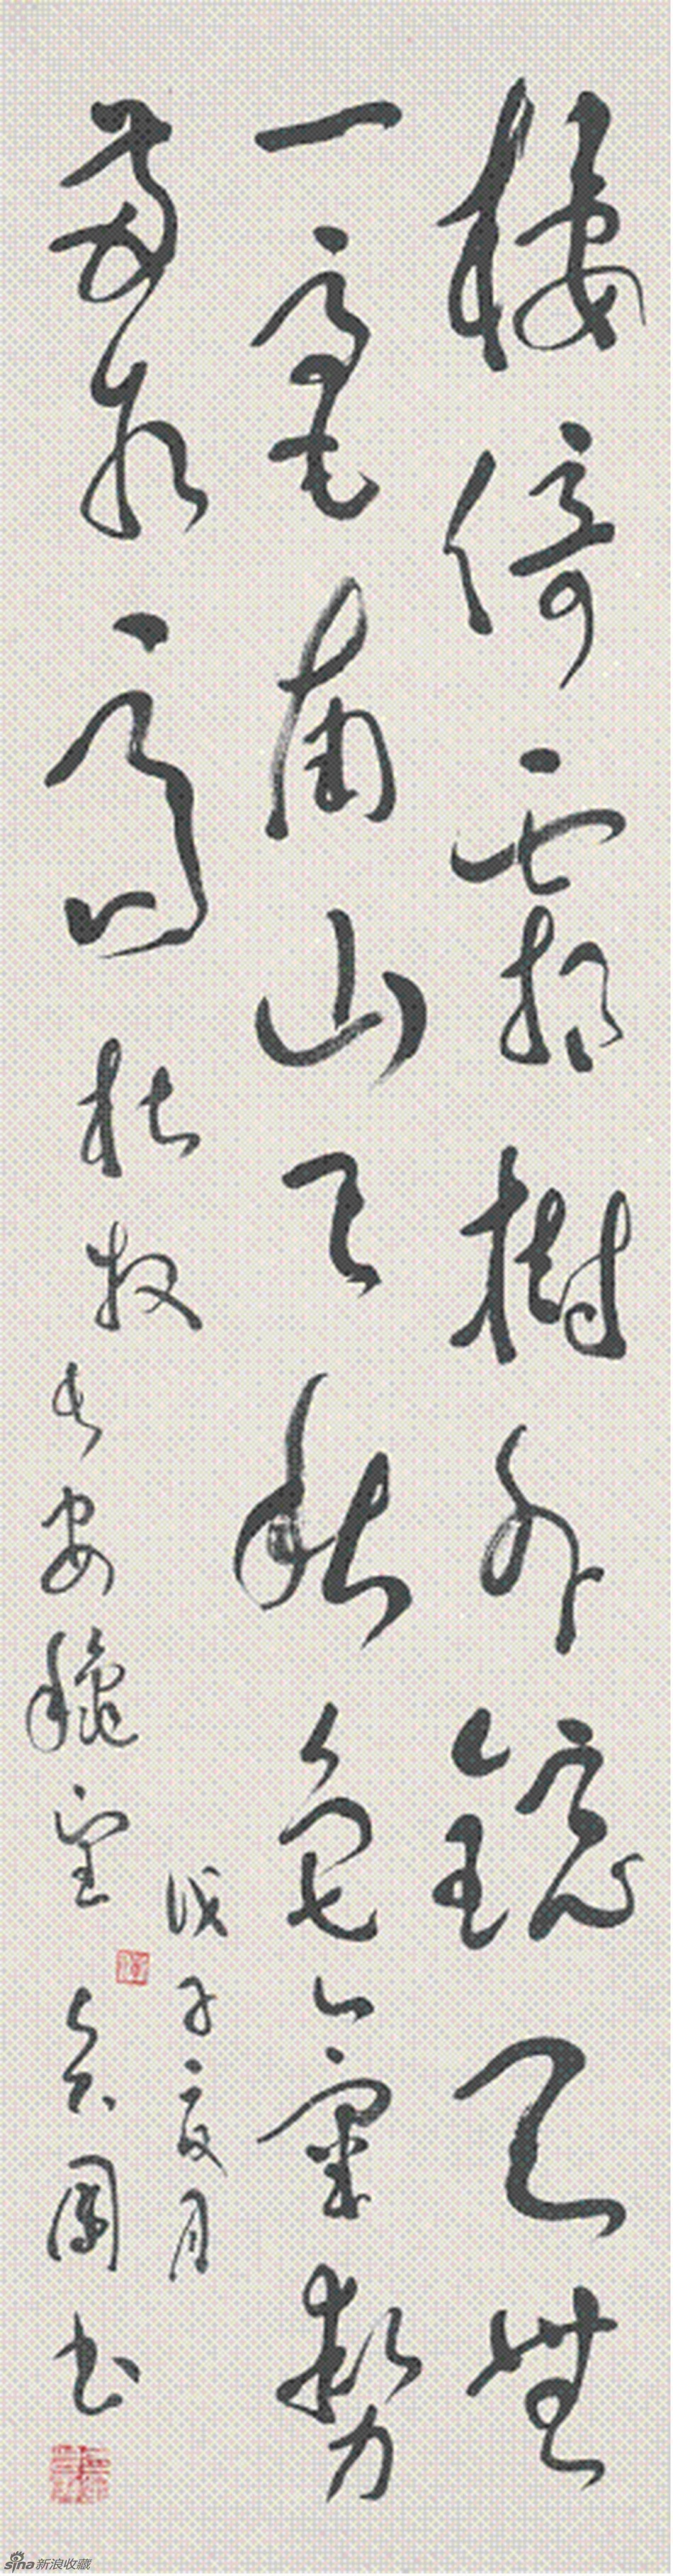 楼倚霜树外镜天无
一毫南山与秋色气势
两相高杜牧
长安秋望
戊子二月
書
sina新浪收藏